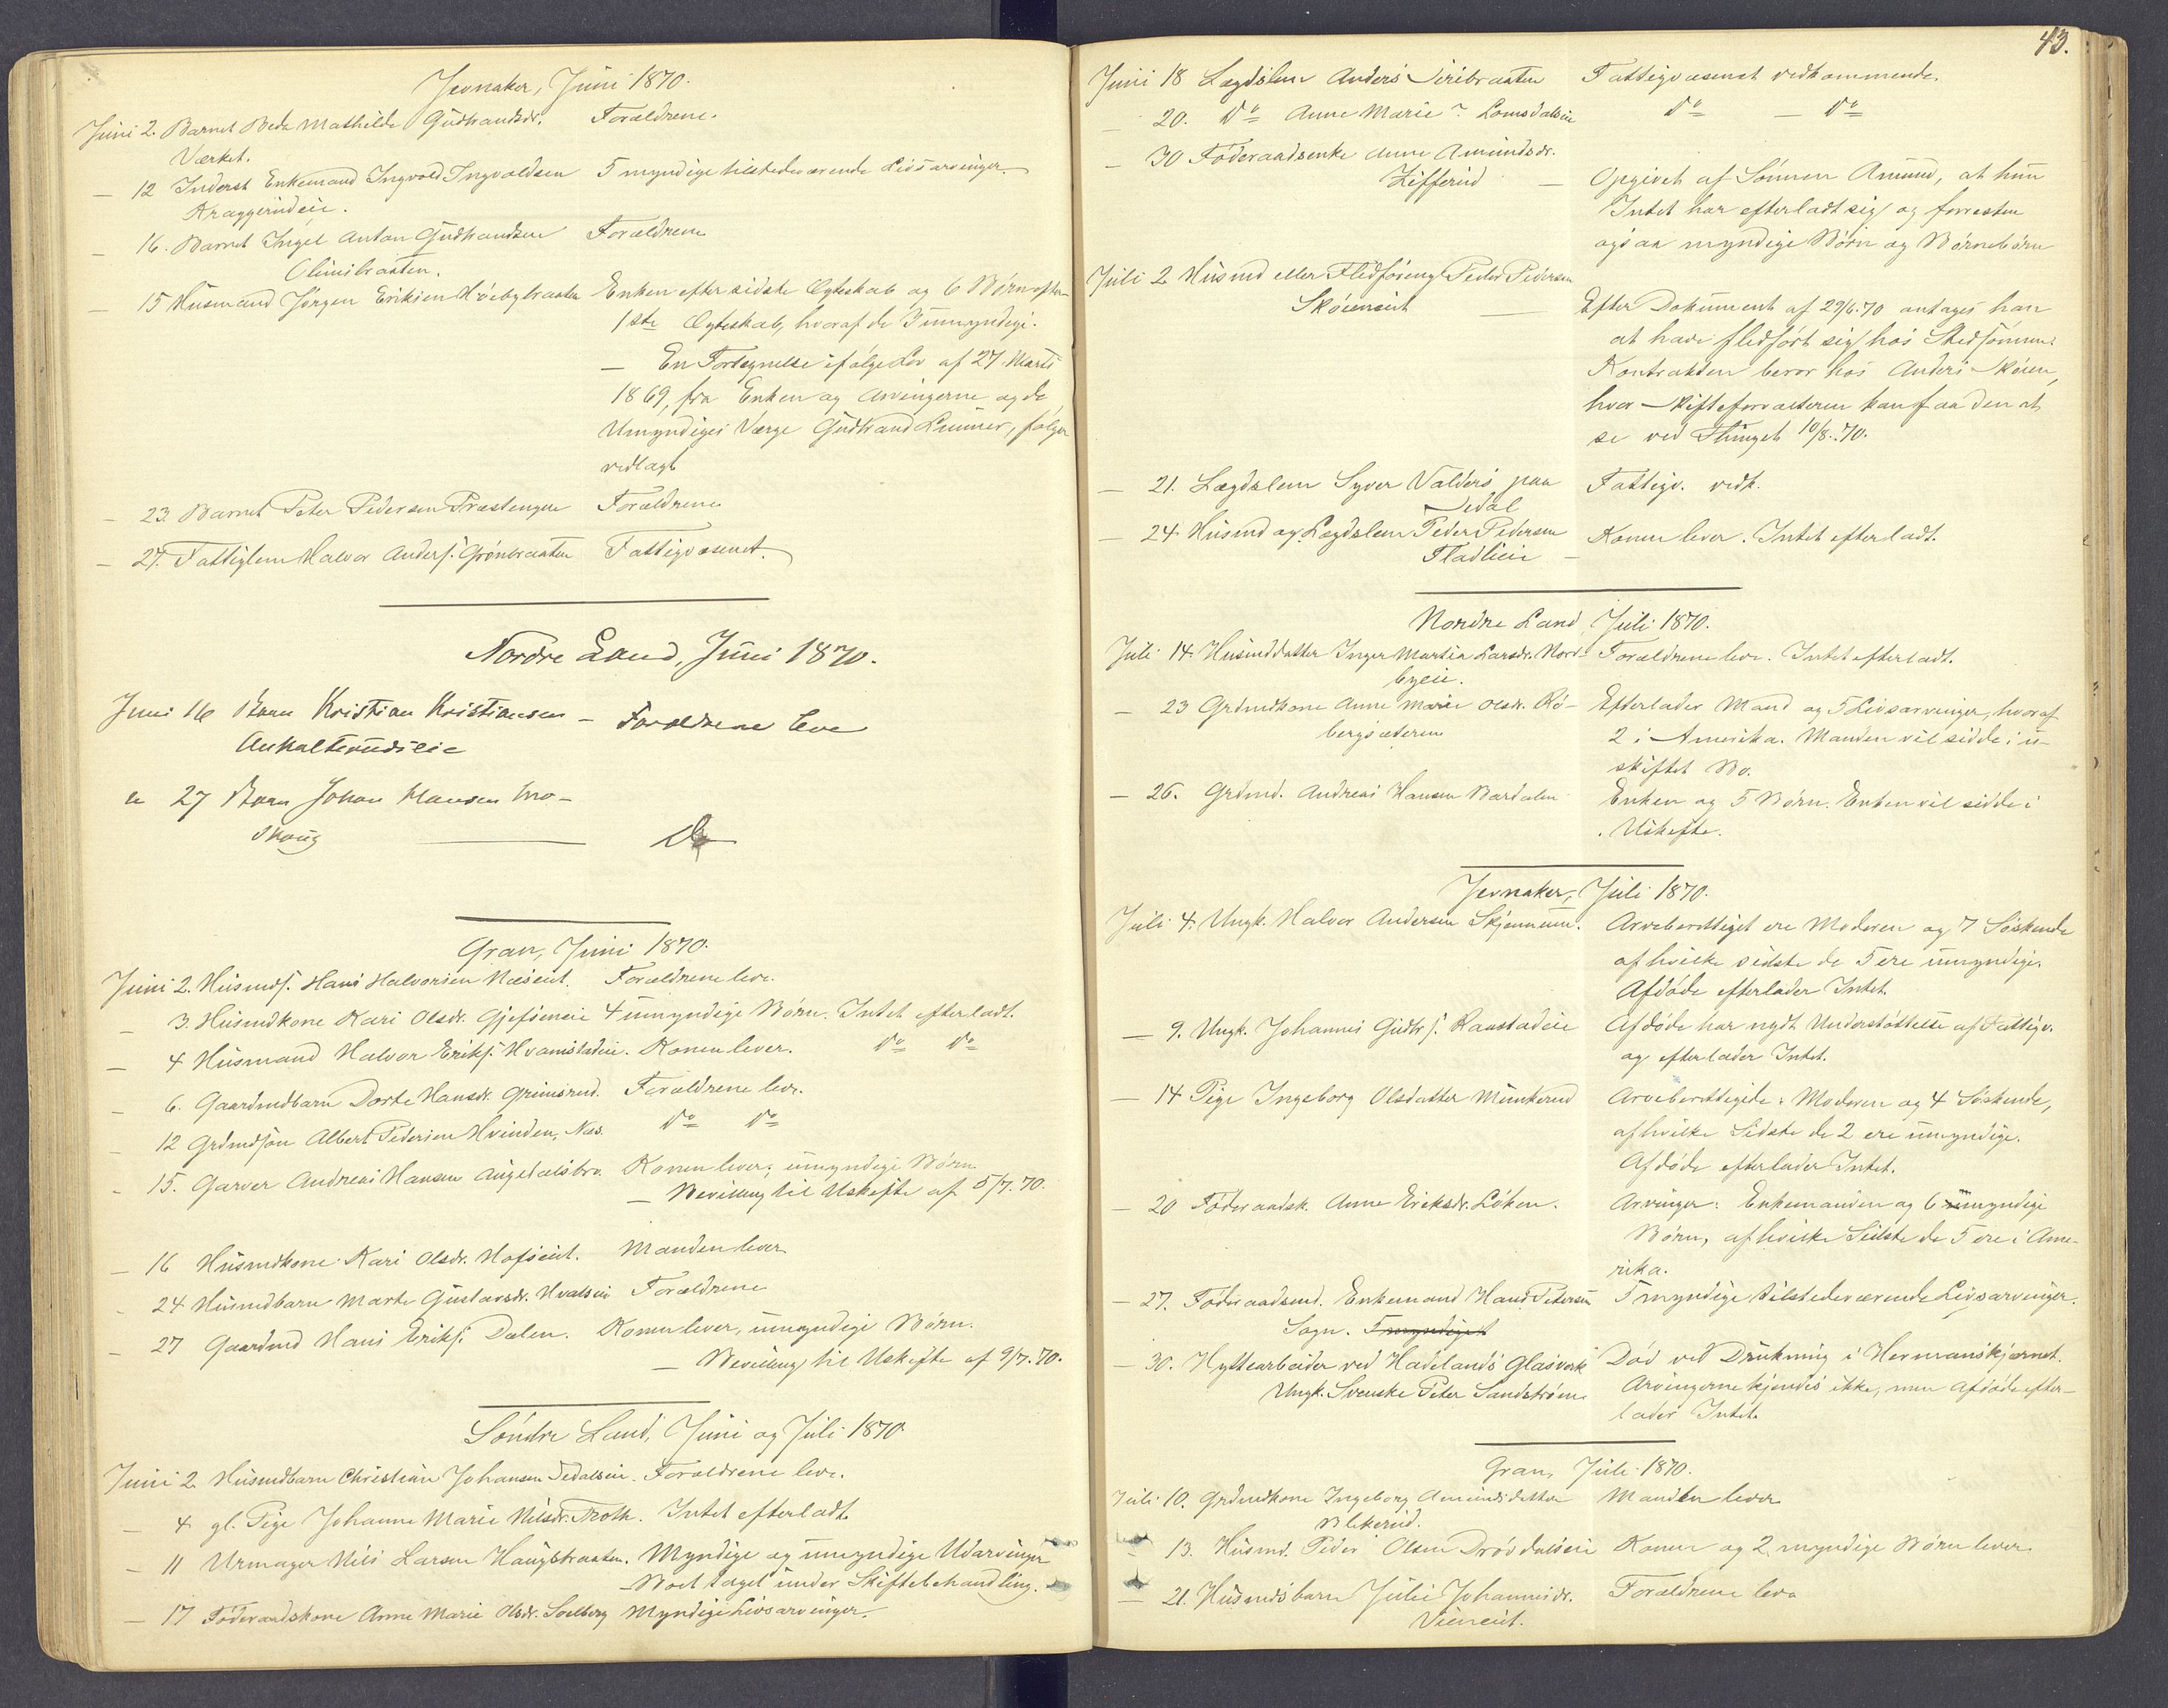 Jevnaker, Juni 1870.
Juni 2. Barnet Beda Mathilde Gudbrandsdr. Forældrene.
Værket.
— 12 Inderst Enkemand Ingvold Ingvoldsen 5 myndige tilstedeværende Livsarvinger.
Kraggerudeie.
— 16. Barnet Ingel Anton Gudbrandsen Forældrene
Olimbraaten.
— 15 Husmand Jørgen Eriksen Høibybraaten Enken efter sidste Ægteskab og 6 Børn efter
1ste Ægteskab, hvoraf de 3 umyndige.
— En Fortegnelse ifølge Lov af 27 Marts
1869, fra Enken og Arvingerne og de
Umyndiges Værge Gudbrand Lunner, følger
vedlagt
— 23. Barnet Peter Pedersen Præstengen Forældrene
— 27. Fattiglem Halvor Anders. Grønbraaten Fattigvæsenet.
Nordre Land, Juni 1870.
Juni 16 Barn Kristian Kristiansen — Forældrene leve
" 27 Barn Johan Hansen
Skoug — Do
Gran, Juni 1870.
Juni 2. Husmds. Hans Halvorsen Næseiet. Forældrene leve.
— 3. Husmdkone Kari Olsdr. 4 umyndige Børn. Intet efterladt.
— 4 Husmand Halvor Eriks. Hvamstadeie. Konen lever. Do Do
— 6. Gaardmdbarn Dorte Hansdr. Grimsrud. Forældrene leve.
— 12 Grdmdsøn Albert Pedersen Hvinden, Næs. Do Do
— 15. Garver Andreas Hansen Augedalsbro. Konen lever; umyndige Børn
— Bevilling til Uskifte af 5/7. 70.
— 16 Husmdkone Kari Olsdr. Hofseiet. Manden lever
— 24 Husmdbarn Marte Gustavsdr. Hvalseie Forældrene
— 27 Gaardmd Hans Eriks. Dalen. Konen lever, umyndige Børn.
— Bevilling til Uskifte af 9/7. 70.
Søndre Land, Juni og Juli 1870
Juni 2 Husmdbarn Christian Johansen Forældrene leve.
— 4 gl. Pige Johanne Marie Nilsdr. Troth. Intet efterladt.
— 11 Urmager Nils Larsen Haugsbraaten. Myndige og umyndige Udarvinger
— Boet taget under Skiftebehandling.
— 17 Føderaadskone Anne Marie Olsdr. Soelberg Myndige Livsarvinger.
43.
Juni 18 Lægdslem Anders Siribraaten Fattigvæsenet vedkommende.
— 20. Do Anne Marie ? Lomsdalseie Do — Do
— 30 Føderaadsenke Anne Amundsdr.
Zifferud — Opgivet af Sønnen Amund, at hun
Intet har efterladt sig, og forresten
ogsaa myndige Børn og Børnebørn
Juli 2 Husmd eller Fledføring Peder Pedersen
Skøieneiet — Efter Dokument af 29/6. 70 antages han
at have fledført sig hos Stedsønnen.
Kontrakten beror hos Anders Skøien,
hvor Skifteforvalteren kan faa den at
se ved Thinget 10/8. 70.
— 21. Lægdslem Syver Valders paa Fattigv. vedk.
Sedal
— 24 Husmd og Lægdslem Peder Pedersen Konen lever. Intet efterladt.
Fladlieie —
Nordre Land Juli 1870.
Juli 14. Husmddatter Inger Martia Larsdr. Nord- Forældrene leve. Intet efterladt.
byeie.
— 23 Grdmdkone Anne Marie Olsdr. Rø- Efterlader Mand og 5 Livsarvinger, hvoraf
bergsæteren 2 i Amerika. Manden vil sidde i u-
skiftet Bo.
— 26. Grdmd. Andreas Hansen Bardalen Enken og 5 Børn. Enken vil sidde i
Uskifte.
Jevnaker, Juli 1870.
Juli 4. Ungk. Halvor Andersen Skjennum. Arveberettiget ere Moderen og 7 Søskende
af hvilke sidste de 5 ere umyndige.
Afdøde efterlader Intet.
— 9. Ungk. Johannes Gudbr.s. Raastadeie Afdøde har nydt Understøttelse af Fattigv.
og efterlader Intet.
— 14 Pige Ingeborg Olsdatter Munkerud Arveberettigede: Moderen og 4 Søskende,
af hvilke Sidste de 2 ere umyndige.
Afdøde efterlader Intet.
— 20 Føderaadsk. Anne Eriksdr. Løken. Arvinger: Enkemanden og 6 myndige
Børn, af hvilke Sidste de 5 ere i Ame-
rika.
— 27. Føderaadsmd. Enkemand Hans Petersen 5 myndige tilstedeværende Livsarvinger.
Sogn. 5 myndige
— 30. Hyttearbeider ved Hadelands Glasværk Død ved Drukning i Hermanskjærnet.
Ungk. Svenske Peter Sandstrøm. Arvingerne kjendes ikke, men Afdøde efter-
lader Intet.
Gran, Juli 1870.
Juli 10. Grdmdkone Ingeborg Amundsdatter Manden lever
Blekerud.
— 13. Husmd. Peder Olsen Drøvdalseie Konen og 2 myndige Børn lever
— 21. Husmdsbarn Julie Johannesdr. Forældrene leve
Vieneiet.